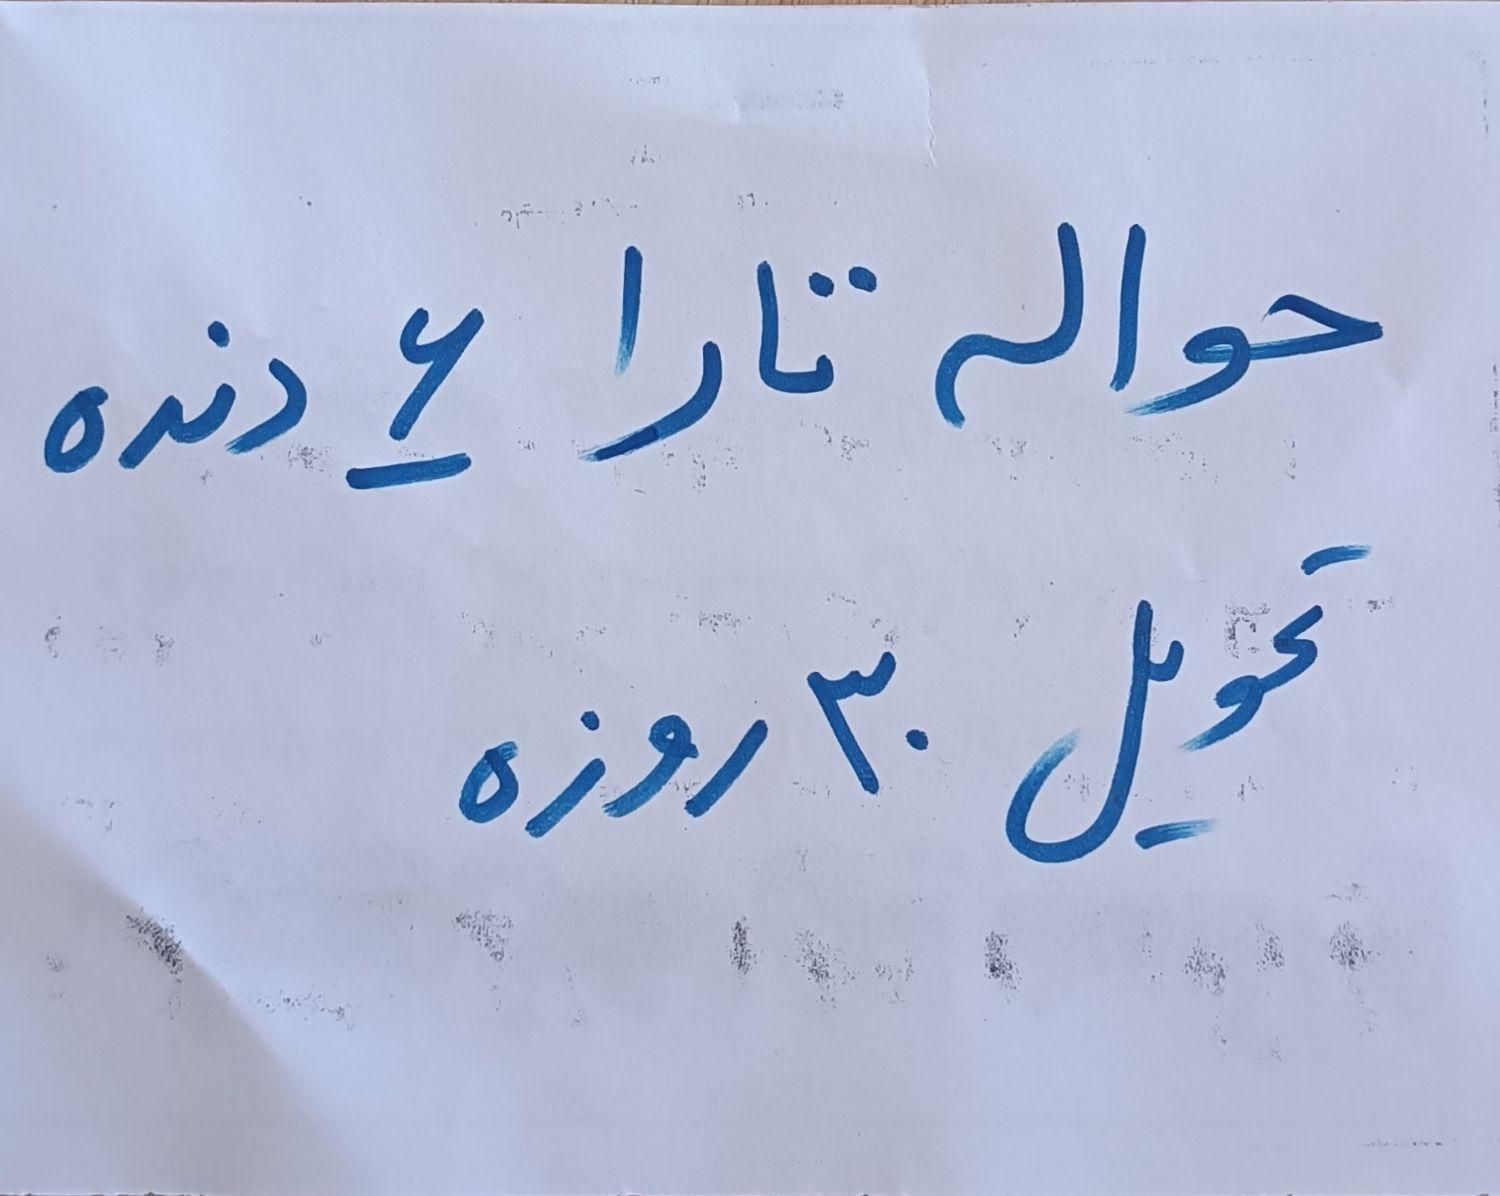 حواله تارا ۶ دنده
تحویل ۳۰ روزه